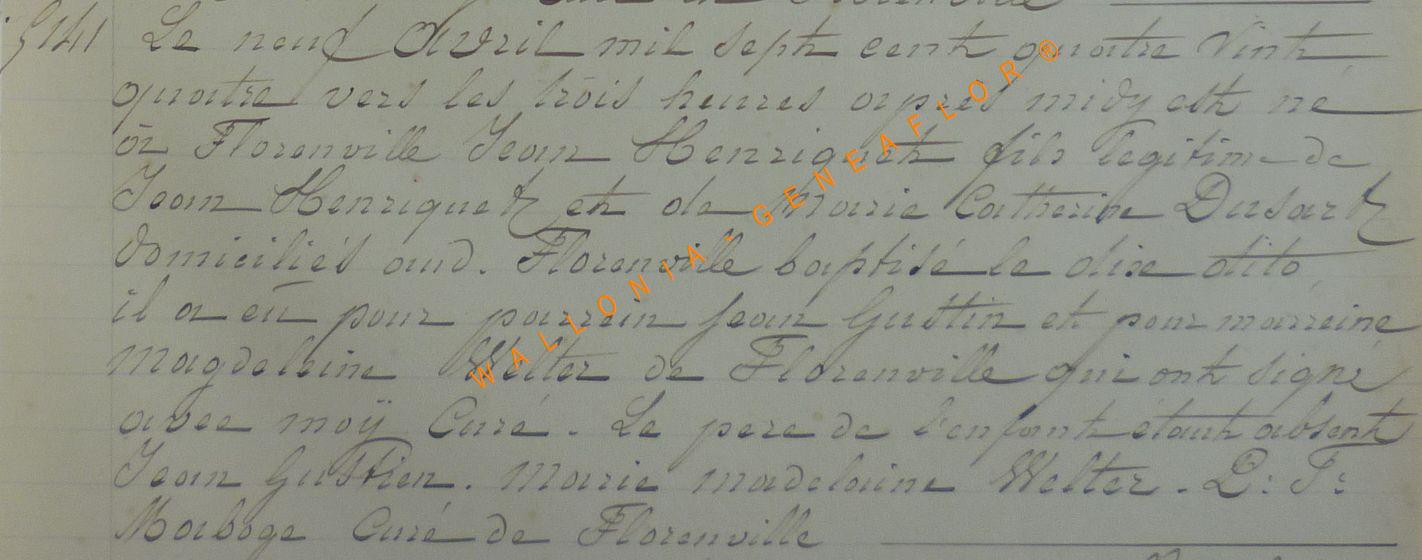 5141 Le neuf Avril mil sept cent quatre vint
quatre vers les trois heures apres midy est né
à Florenville Jean Henriquet fils legitime de
Jean Henriquet et de Marie Catherine Dusart
domiciliés aud. Florenville baptisé le dixe dito
il a eü pour parrein jean Gustin et pour marreine
Magdeleine Welter de Florenville qui ont signé
avec moÿ Curé. Le pere de l'enfant étant absent
Jean Gustien. Marie madelaine Welter. P: F:
Maboge Curé de Florenville
WALLONIA - GENEAFLOR ©